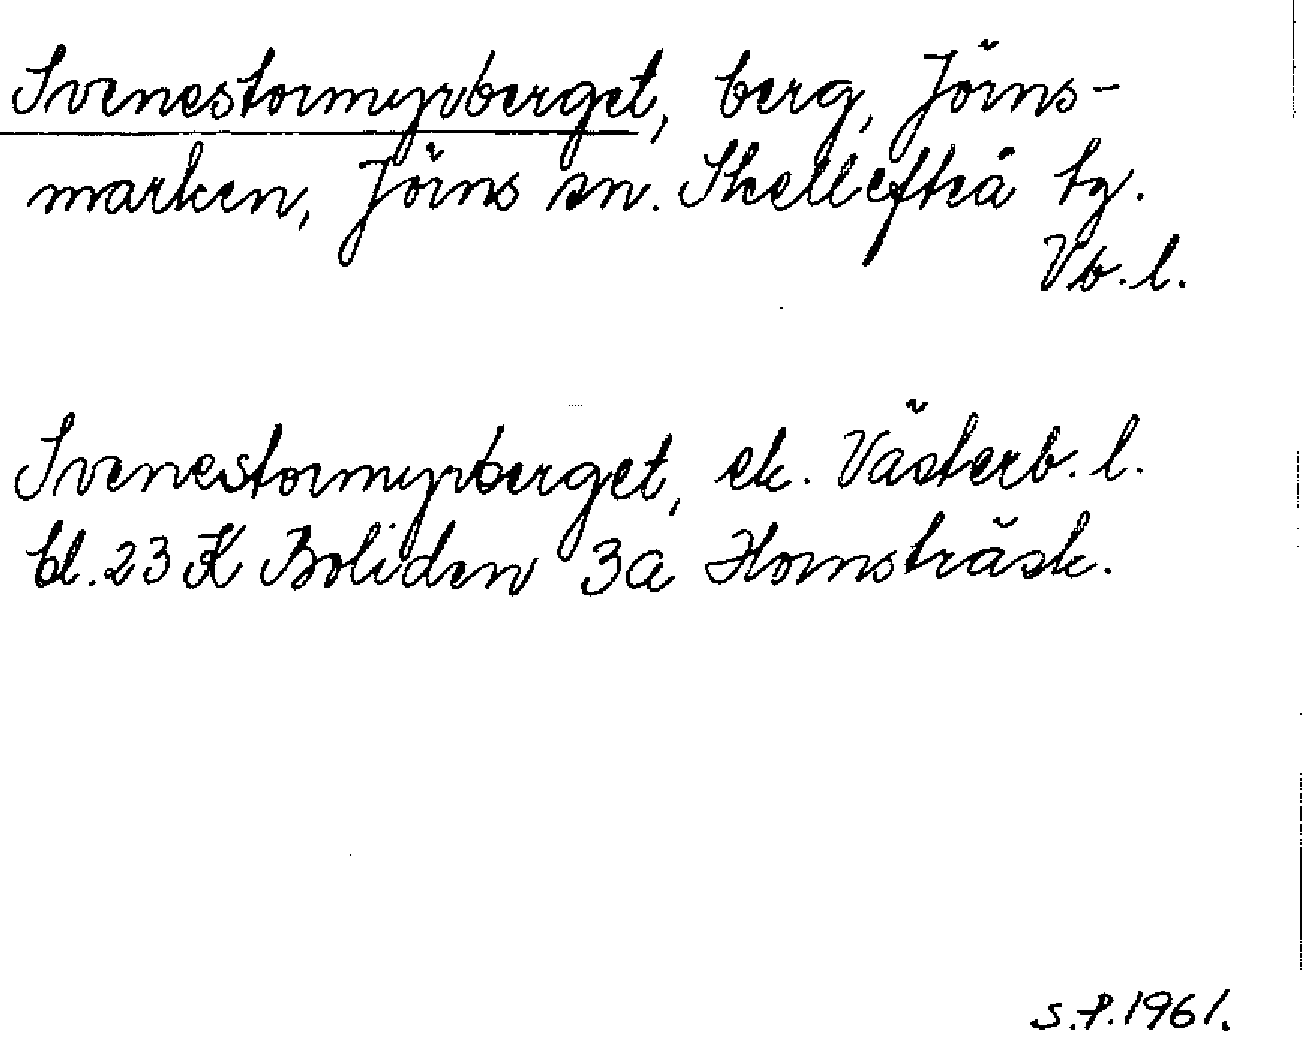 Svenestormyrberget, berg, Jörns-
marken, Jörns sn. Skellefteå tg.
Vb. l.
Svenestormyrberget, ek. Västerb. l.
bl. 23 K Boliden 3a Hornsträsk.
S.P. 1961.